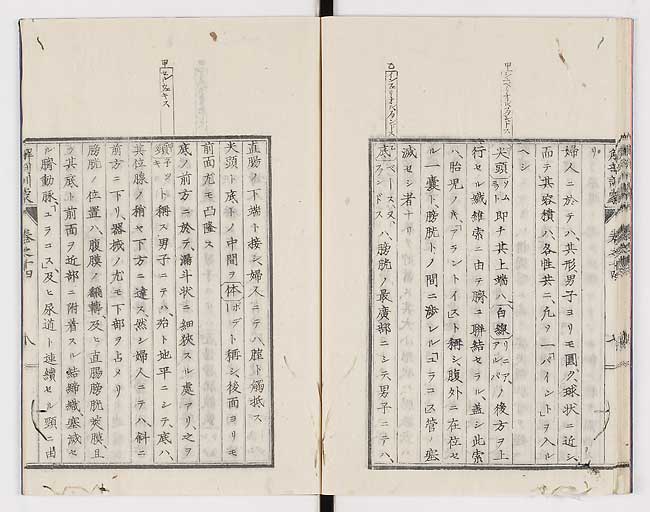 リ
婦人ニ於テハ其形、男子ヨリモ圓ク、球状ニ近シ、
而テ其容積ハ、各性共ニ、凢ソ一「パイント」ヲ入ル
ヘシ
尖頭「ソムミット」即チ其上端ハ、白線「リニア、アルバ」ノ後方ヲ上
行セル纖維索ニ由テ臍ニ聯結セラル、蓋シ此索
ハ胎児ノ「アラントイ」スト稱シ、腹外ニ在位セ
ル一囊ト、膀胱トノ間ニ渉レル「ユラコス」管ノ塞
滅セシ者ナリ
底「ベース」又「フンドス」ハ、膀胱ノ最廣部ニシテ、男子ニテハ、
直腸ノ下端ト接シ、婦人ニテハ腟ト觸抵ス
尖頭ト底トノ中間ヲ体「ボデー」ト稱シ、後面ヨリモ
前面尤モ凸隆ス
底ノ前方ニ於テ、漏斗状ニ細狭スル處アリ之ヲ
頸「ネッキ」ト稱ス男子ニテハ、殆ト地平ニシテ、底ハ、
其位腺ノ稍ヤ下方ニ達ス然シ婦人ニテハ、斜ニ
前方ニ下リ、器械ノ尤モ下部ヲ占メリ
膀胱ノ位置ハ、腹膜ノ翻轉、及ヒ直腸膀胱筴膜、且
ツ其底ト前面ヲ近部ニ附着スル結締織、塞滅セ
ル臍動脈、「ユラコス」及ヒ尿道ト連續セル頸ニ由
解剖訓蒙
卷之十四
八